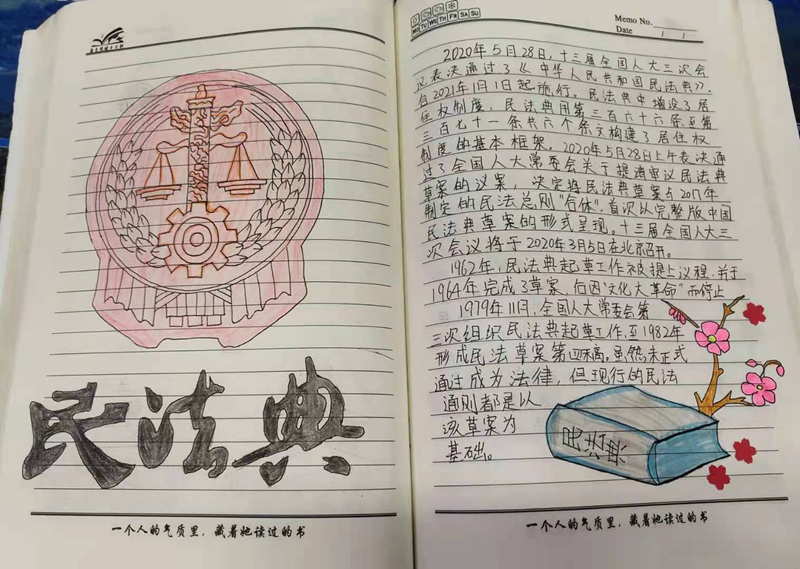 民法典
一个人的气质里，藏着她读过的书
MO TU WE TH FR SA SU
Memo No.
Date / /
2020年5月28日，十三届全国人大三次会
议表决通过了《中华人民共和国民法典》，
自2021年1月1日起施行。民法典中增设了居
住权制度，民法典用第三百六十六条至第
三百七十一条共六个条文构建了居住权
制度的基本框架。2020年5月28日上午表决通
过了全国人大常委会关于提请审议民法典
草案的议案，决定将民法典草案与2017年
制定的民法总则“合体”，首次以完整版中国
民法典草案的形式呈现。十三届全国人大三
次会议将于2020年3月5日在北京召开。
1962年，民法典起草工作被提上议程，并于
1964年完成了草案，后因“文化大革命”而停止
1979年11月，全国人大常委会第
三次组织民法典起草工作，至1982年
形成民法草案第四稿。虽然未正式
通过成为法律，但现行的民法
通则都是以
该草案为
基础。
民法典
一个人的气质里，藏着她读过的书